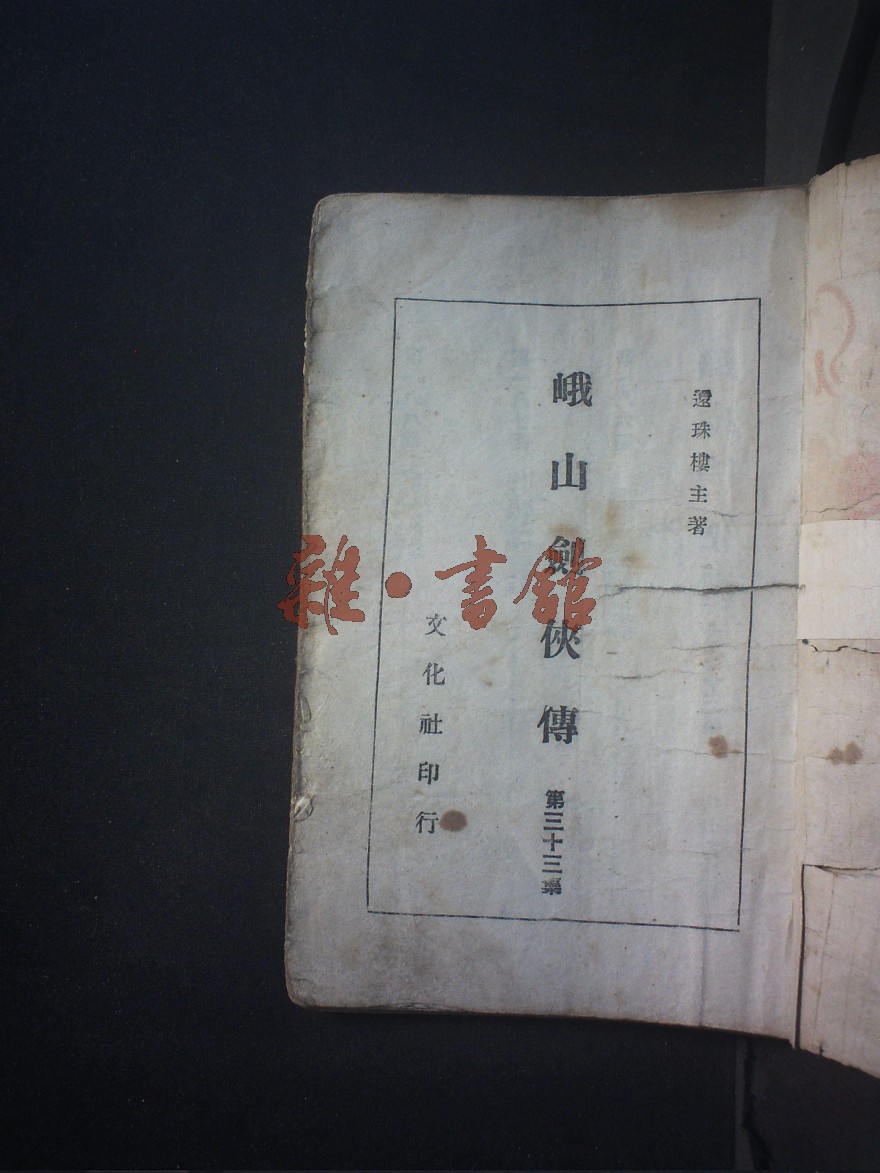 還珠樓主著
峨山劍俠傳
第三十三集
文化社印行
雜·書館